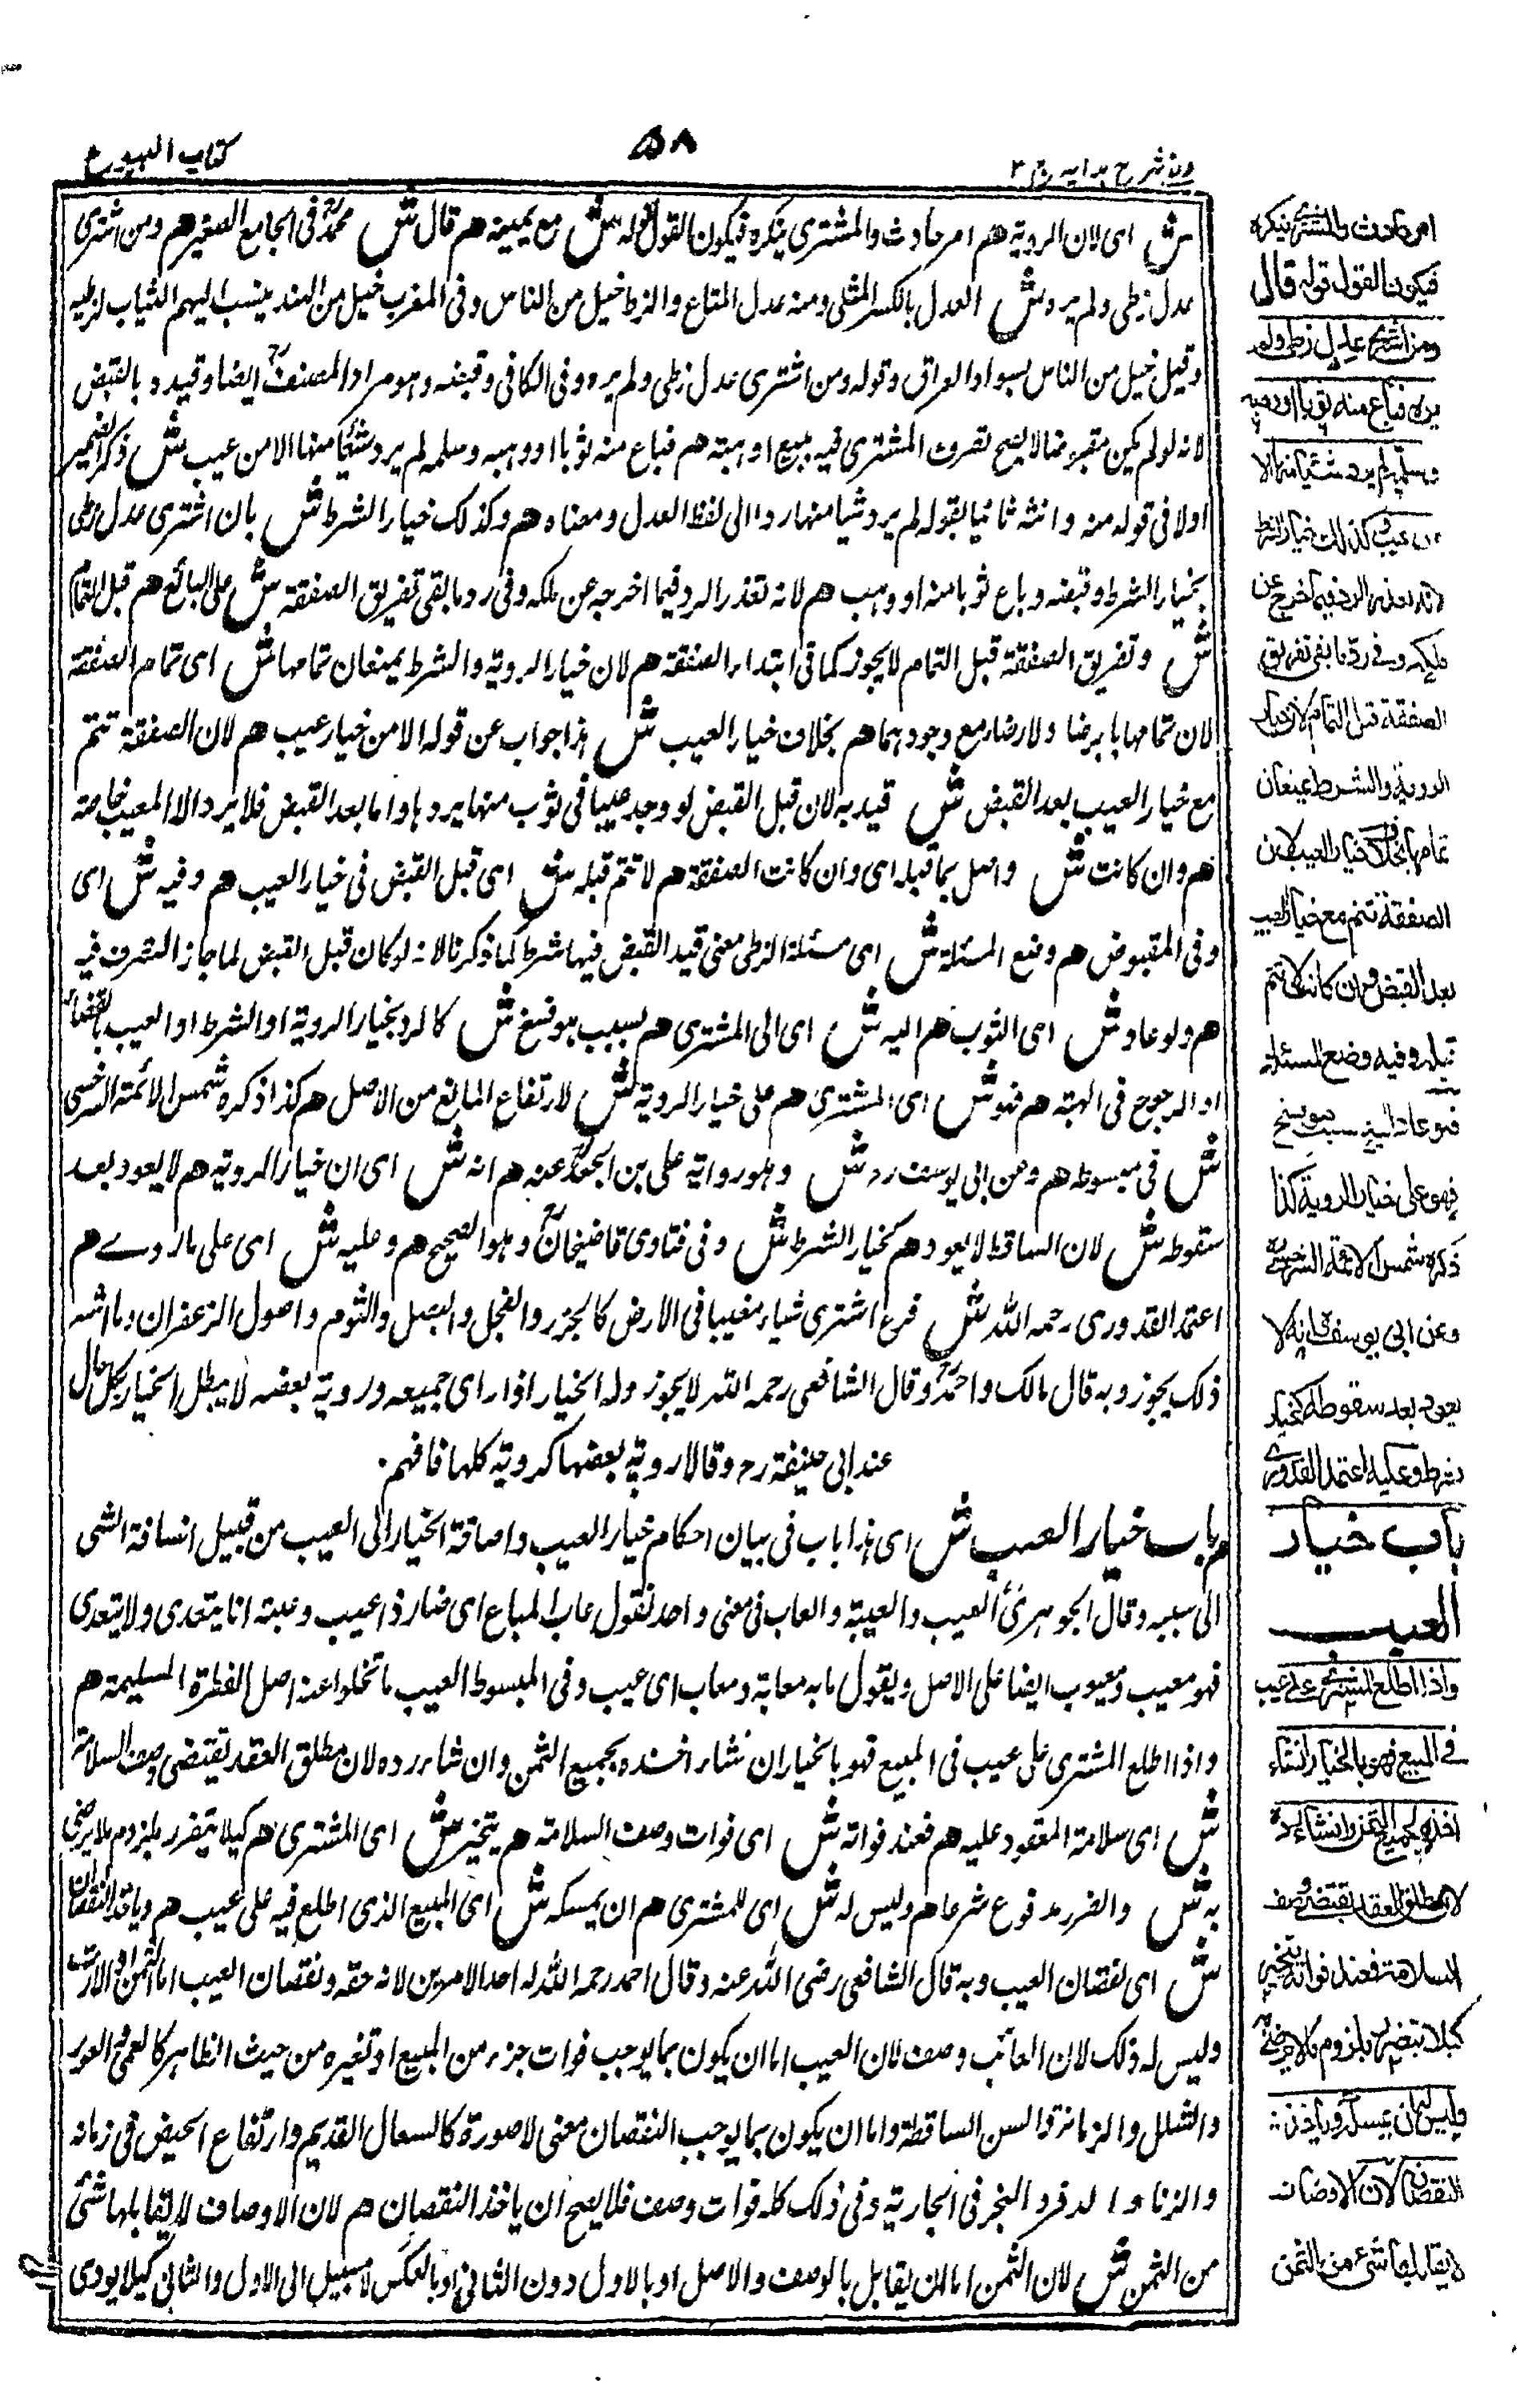 كتاب البيوع
٥٨
شرح هدايه ج ٣
ش اى لان الروية هم امر حادث والمشترى ينكره فيكون القول قوله ش مع يمينه هم قال ش محمد فى الجامع الصغير هم ومن اشترى
عدل زطى ولم يره ش العدل بالكسر المثل ومنه عدل المتاع والزط خيل من الناس وفى المغرب خيل من الهند ينسب اليهم الثياب الزطية
وقيل خيل من الناس بسواد العراق وقوله ومن اشترى عدل زطى ولم يره وفى الكافى وقبضه وهو مراد المصنف ايضا وقيده بالقبض
لانه لو لم يكن مقبوضا لا يصح تصرف المشترى فيه ببيع او هبة هم فباع منه ثوبا او وهبه وسلمه لم يرد شيئا منها الا من عيب ش ذكر الضمير
اولا فى قوله منه وانثه ثانيا بقوله لم يرد شيا منها ردا الى لفظ العدل ومعناه هم وكذلك خيار الشرط ش بان اشترى عدل زطى
بخيار الشرط وقبضه وباع ثوبا منه او وهب هم لانه تعذر الرد فيما اخرجه عن ملكه وفى رد ما بقى تفريق الصفقة ش على البائع هم قبل التمام
ش وتفريق الصفقة قبل التمام لا يجوز كما فى ابتداء الصفقة هم لان خيار الروية والشرط يمنعان تمامها ش اى تمام الصفقة
لان تمامها بالرضا ولا رضاء مع وجودهما هم بخلاف خيار العيب ش هذا جواب عن قوله الا من خيار عيب هم لان الصفقة تتم
مع خيار العيب بعد القبض ش قيد به لان قبل القبض لو وجد عيبا فى ثوب منها يردها واما بعد القبض فلا يرد الا المعيب خاصة
هم وان كانت ش واصل بما قبله اى وان كانت الصفقة هم لا تتم قبله ش اى قبل القبض فى خيار العيب هم وفيه ش اى
وفى المقبوض هم وضع المسئلة ش اى مسئلة الزطى معنى قيد القبض فيها شرط لما ذكرنا لانه لو كان قبل القبض لما جاز التصرف فيه
هم ولو عاد ش اى الثوب هم اليه ش اى الى المشترى هم بسبب هو فسخ ش كالرد بخيار الروية او الشرط او العيب بالقضاء
او الرجوع فى الهبة هم فهو ش اى المشترى هم على خيار الروية ش لارتفاع المانع من الاصل هم كذا ذكره شمس الائمة السرخسى
ش فى مبسوطه هم وعن ابى يوسف رح ش وهو رواية على بن الجعد عنه هم انه ش اى ان خيار الروية هم لا يعود بعد
سقوطه ش لان الساقط لا يعود هم كخيار الشرط ش وفى فتاوى قاضيخان وهو الصحيح هم وعليه ش اى على ما روى هم
اعتمد القدورى رحمه الله ش فرع اشترى شياء مغيبا فى الارض كالجزر والفجل والبصل والثوم واصول الزعفران وما اشبه
ذلك يجوز وبه قال مالك واحمد وقال الشافعى رحمه الله لا يجوز وله الخيار اذا راى جميعه وروية بعضه لا يبطل الخيار بكل حال
عند ابى حنيفة رح وقالا روية بعضها كروية كلها فافهم
هم باب خيار العيب ش اى هذا باب فى بيان احكام خيار العيب واضافة الخيار الى العيب من قبيل اضافة الشى
الى سببه وقال الجوهرى العيب والعيبة والعاب فى معنى واحد تقول عاب المباع اى صار ذا عيب وعبته انا يتعدى ولا يتعدى
فهو معيب ومعيوب ايضا على الاصل ويقول ما به معابة ومعاب اى عيب وفى المبسوط العيب ما تخلوا عنه اصل الفطرة السليمة هم
واذا اطلع المشترى على عيب فى المبيع فهو بالخيار ان شاء اخذه بجميع الثمن وان شاء رده لان مطلق العقد يقتضى وصف السلامة
ش اى سلامة المعقود عليه هم فعند فواته ش اى فوات وصف السلامة هم يتخير ش اى المشترى هم كيلا يتضرر بلزوم ما لا يرضى
به ش والضرر مدفوع شرعا هم وليس له ش اى للمشترى هم ان يمسكه ش اى المبيع الذى اطلع فيه على عيب هم وياخذ النقصان
ش اى نقصان العيب وبه قال الشافعى رضى الله عنه وقال احمد رحمه الله له احد الامرين لانه حقه ونقصان العيب اما الثمن او الارش
وليس له ذلك لان الفائت وصف لان العيب اما ان يكون بما يوجب فوات جزء من المبيع او تغيره من حيث الظاهر كالعمى والعور
والشلل والزمانة والسن الساقطة واما ان يكون بما يوجب النقصان معنى لا صورة كالسعال القديم وارتفاع الحيض فى زمانه
والزنا و الدفر والبخر فى الجارية وفى ذلك كله فوات وصف فلا يصح ان ياخذ النقصان هم لان الاوصاف لا يقابلها شئ
من الثمن ش لان الثمن اما ان يقابل بالوصف والاصل او بالاول دون الثانى او بالعكس لا سبيل الى الاول والثانى كيلا يودى
امر حادث والمشترى ينكره
فيكون القول قوله قال
ومن اشترى عدل زطى ولم
يره فباع منه ثوبا او وهبه
وسلمه لم يرد شيئا منها الا
من عيب وكذلك خيار الشرط
لانه تعذر الرد فيما خرج عن
ملكه وفى رد ما بقى تفريق
الصفقة قبل التمام لان خيار
الروية والشرط يمنعان
تمامها بخلاف خيار العيب لان
الصفقة تتم مع خيار العيب
بعد القبض وان كانت لا تتم
قبله وفيه وضع المسئلة
فلو عاد اليه بسبب هو فسخ
فهو على خيار الروية كذا
ذكره شمس الائمة السرخسى
وعن ابى يوسف انه لا
يعود بعد سقوطه كخيار
الشرط وعليه اعتمد القدورى
باب خيار
العيب
واذا اطلع المشترى على عيب
فى المبيع فهو بالخيار ان شاء
اخذه بجميع الثمن وان شاء رده
لان مطلق العقد يقتضى وصف
السلامة فعند فواته يتخير
كيلا يتضرر بلزوم ما لا يرضى به
وليس له ان يمسكه وياخذ
النقصان لان الاوصاف
لا يقابلها شئ من الثمن